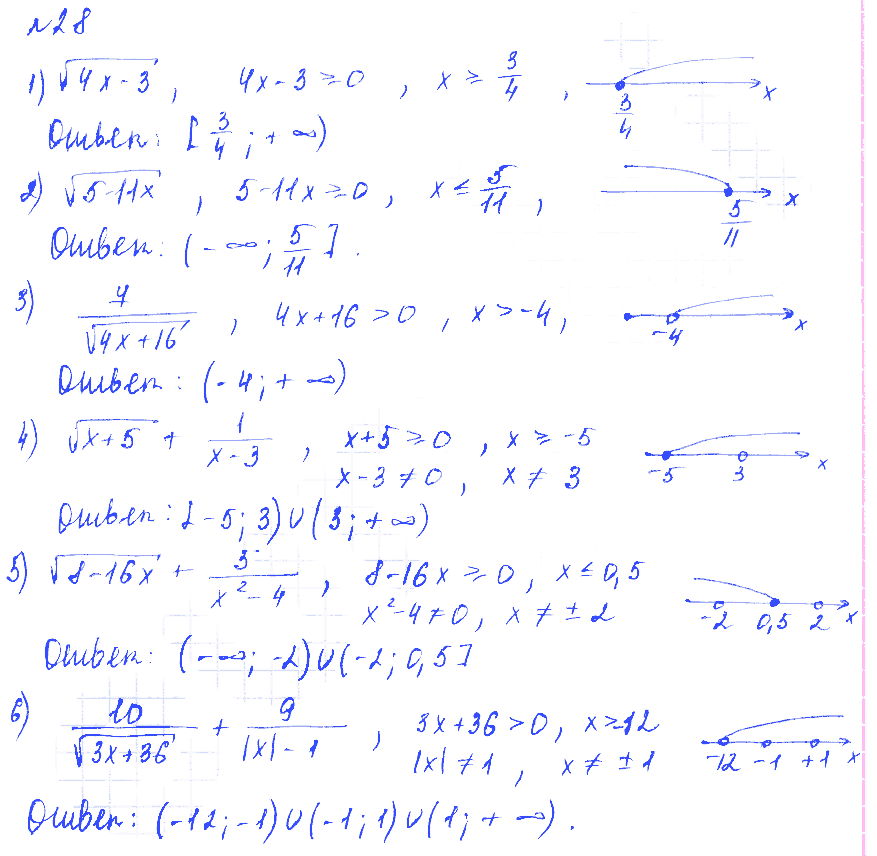 №28
1) √(4x-3), 4x-3≥0, x≥3/4, 3/4 x
Ответ: [3/4; +∞)
2) √(5-11x), 5-11x≥0, x≤5/11, 5/11 x
Ответ: (-∞; 5/11].
3) 4/√(4x+16), 4x+16>0, x>-4, -4 x
Ответ: (-4; +∞)
4) √(x+5) + 1/(x-3), x+5≥0, x≥-5 -5 3 x
x-3≠0, x≠3
Ответ: [-5; 3)∪(3; +∞)
5) √(8-16x) + 3/(x²-4), 8-16x≥0, x≤0,5
x²-4≠0, x≠±2 -2 0,5 2 x
Ответ: (-∞; -2)∪(-2; 0,5]
6) 10/√(3x+36) + 9/(|x|-1), 3x+36>0, x>-12
|x|≠1, x≠±1 -12 -1 +1 x
Ответ: (-12; -1)∪(-1; 1)∪(1; +∞).